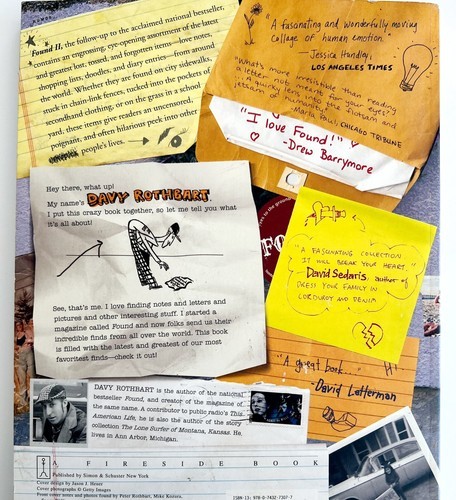 Found II, the follow-up to the acclaimed national bestseller,
contains an engrossing, eye-opening assortment of the latest
and greatest lost, tossed, and forgotten items—love notes,
shopping lists, doodles, and diary entries—from around
the world. Whether they are found on city sidewalks,
stuck in chain-link fences, tucked into the pockets of
secondhand clothing, or on the grass in a school
yard, these items give readers an uncensored,
poignant, and often hilarious peek into other
people's lives.
"A fascinating and wonderfully moving
collage of human emotion."
—Jessica Hundley,
LOS ANGELES TIMES
"What's more irresistible than reading
a letter not meant for your eyes?
a quirky lens into the flotsam and
jetsam of humanity."
-Maria Paul, CHICAGO TRIBUNE
"I love Found!"
-Drew Barrymore
Hey there, what up!
My name's DAVY ROTHBART
I put this crazy book together, so let me tell you what
it's all about!
See, that's me. I love finding notes and letters and
pictures and other interesting stuff. I started a
magazine called Found and now folks send us their
incredible finds from all over the world. This book
is filled with the latest and greatest of our most
favoritest finds—check it out!
FO
"A FASCINATING COLLECTION
IT WILL BREAK YOUR HEART."
David Sedaris, author of
DRESS YOUR FAMILY IN
CORDUROY AND DENIM
"A great book..."
Hi
-David Letterman
DAVY ROTHBART is the author of the national
bestseller Found, and creator of the magazine of
the same name. A contributor to public radio's This
American Life, he is also the author of the story
collection The Lone Surfer of Montana, Kansas. He
lives in Ann Arbor, Michigan.
A FIRESIDE BOOK
Published by Simon & Schuster New York
Cover design by Jason J. Heuer
Cover photographs © Getty Images
Front cover notes and photos found by Peter Rothbart, Mike Kozura,
ISBN-13: 978-0-7432-7307-7